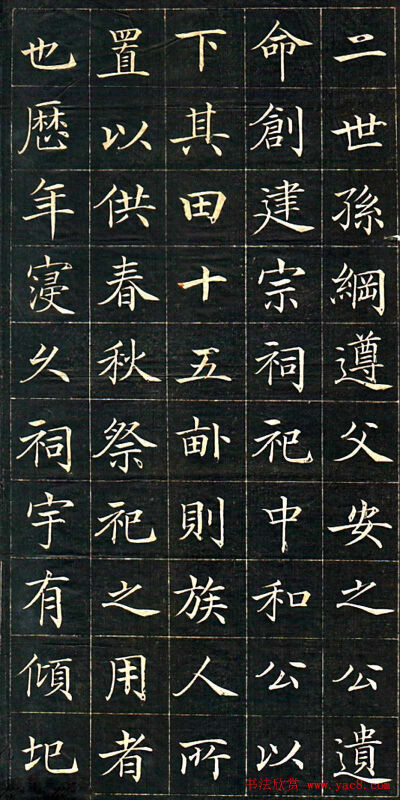 二世孫綱遵父安之公遺
命創建宗祠祀中和公以
下其田十五畝則族人所
置以供春秋祭祀之用者
也歷年寖久祠宇有傾圮
书法欣赏 www.yac8.com